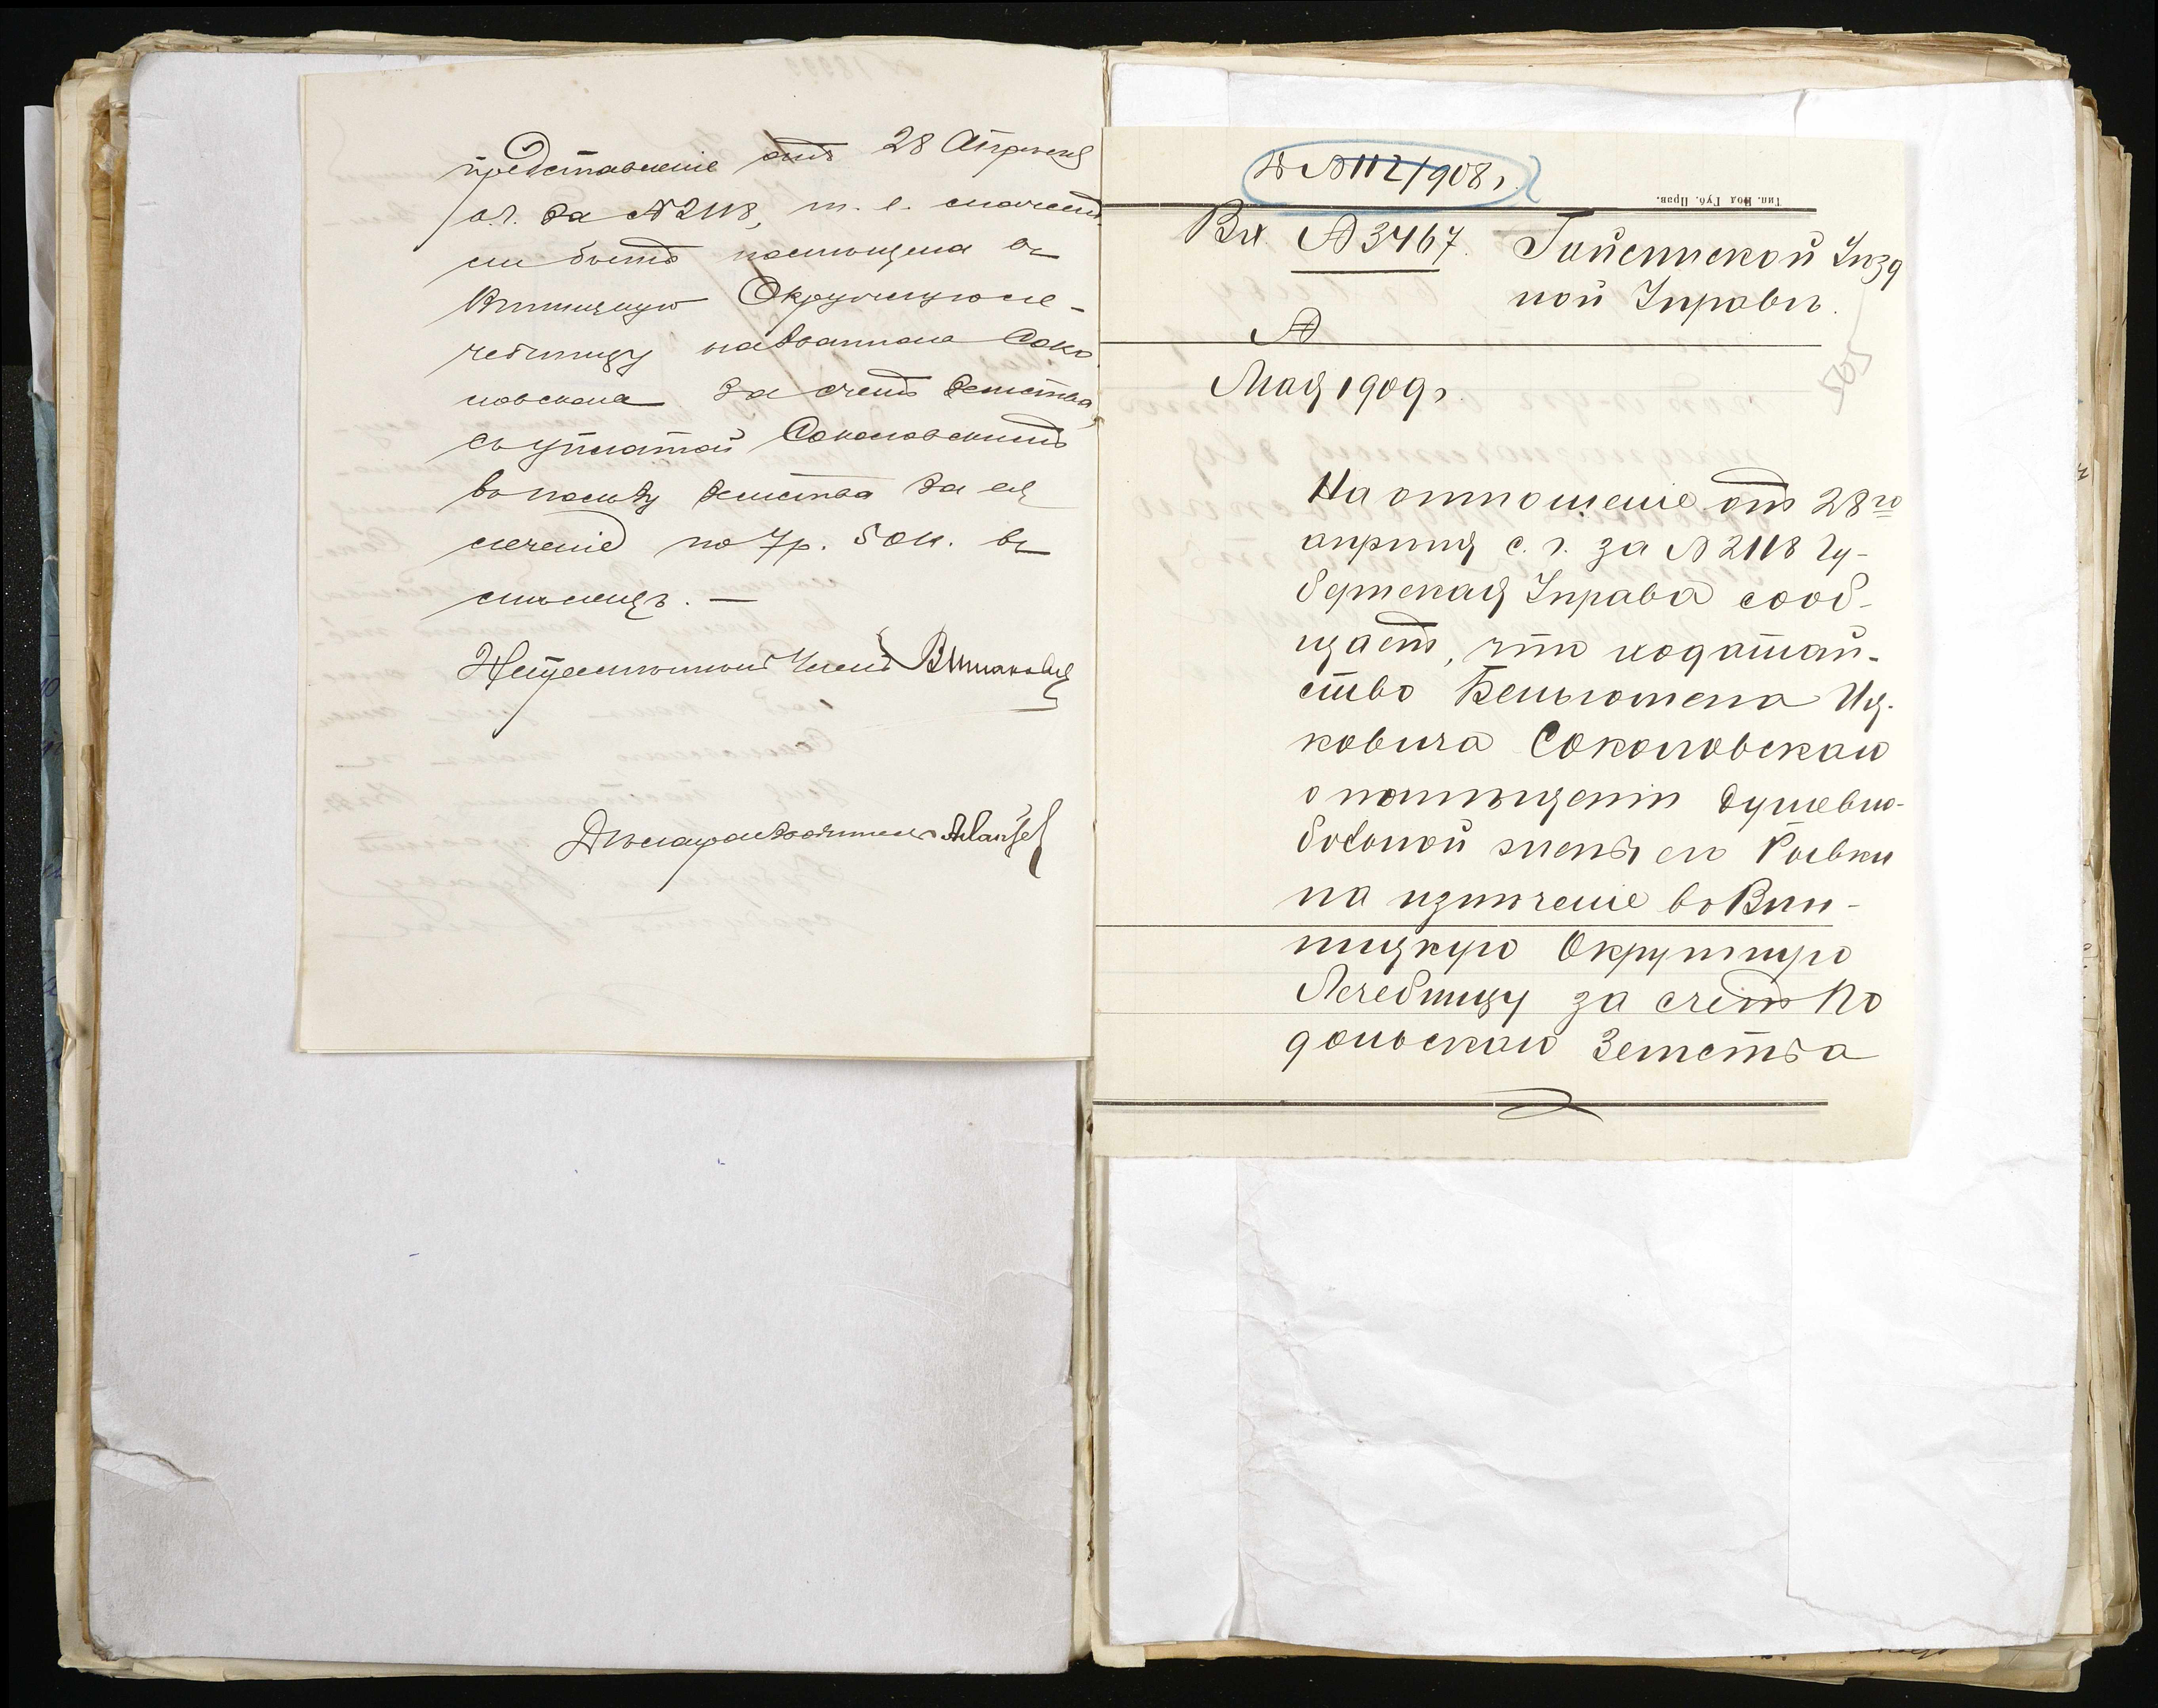 представленіе отъ 28 Апрѣля
с.г. за № 2118, т. е. можетъ
ли быть помѣщена въ
Винницкую Окружную ле-
чебницу названная Соко
ловская за счетъ земства,
съ уплатой Соколовскимъ
въ пользу земства за ея
леченіе по 7 р. 50 к. въ
мѣсяцъ. —
Непремѣнный Членъ
Дѣлопроизводитель
Д № 112/908 г.
Тип. Под. Губ. Прав.
Вх. № 3467. Гайсинской Уѣзд
ной Управѣ.
№
505
Мая 1909 г.
На отношеніе отъ 28го
апрѣля с. г. за № 2118 Гу-
бернская Управа сооб-
щаетъ, что ходатай-
ство Бельгомена Иц-
ковича Соколовскаго
о помѣщеніи душевно-
больной жены его Ривки
на излѣченіе въ Вин-
ницкую Окружную
Лечебницу за счетъ По
дольскаго Земства